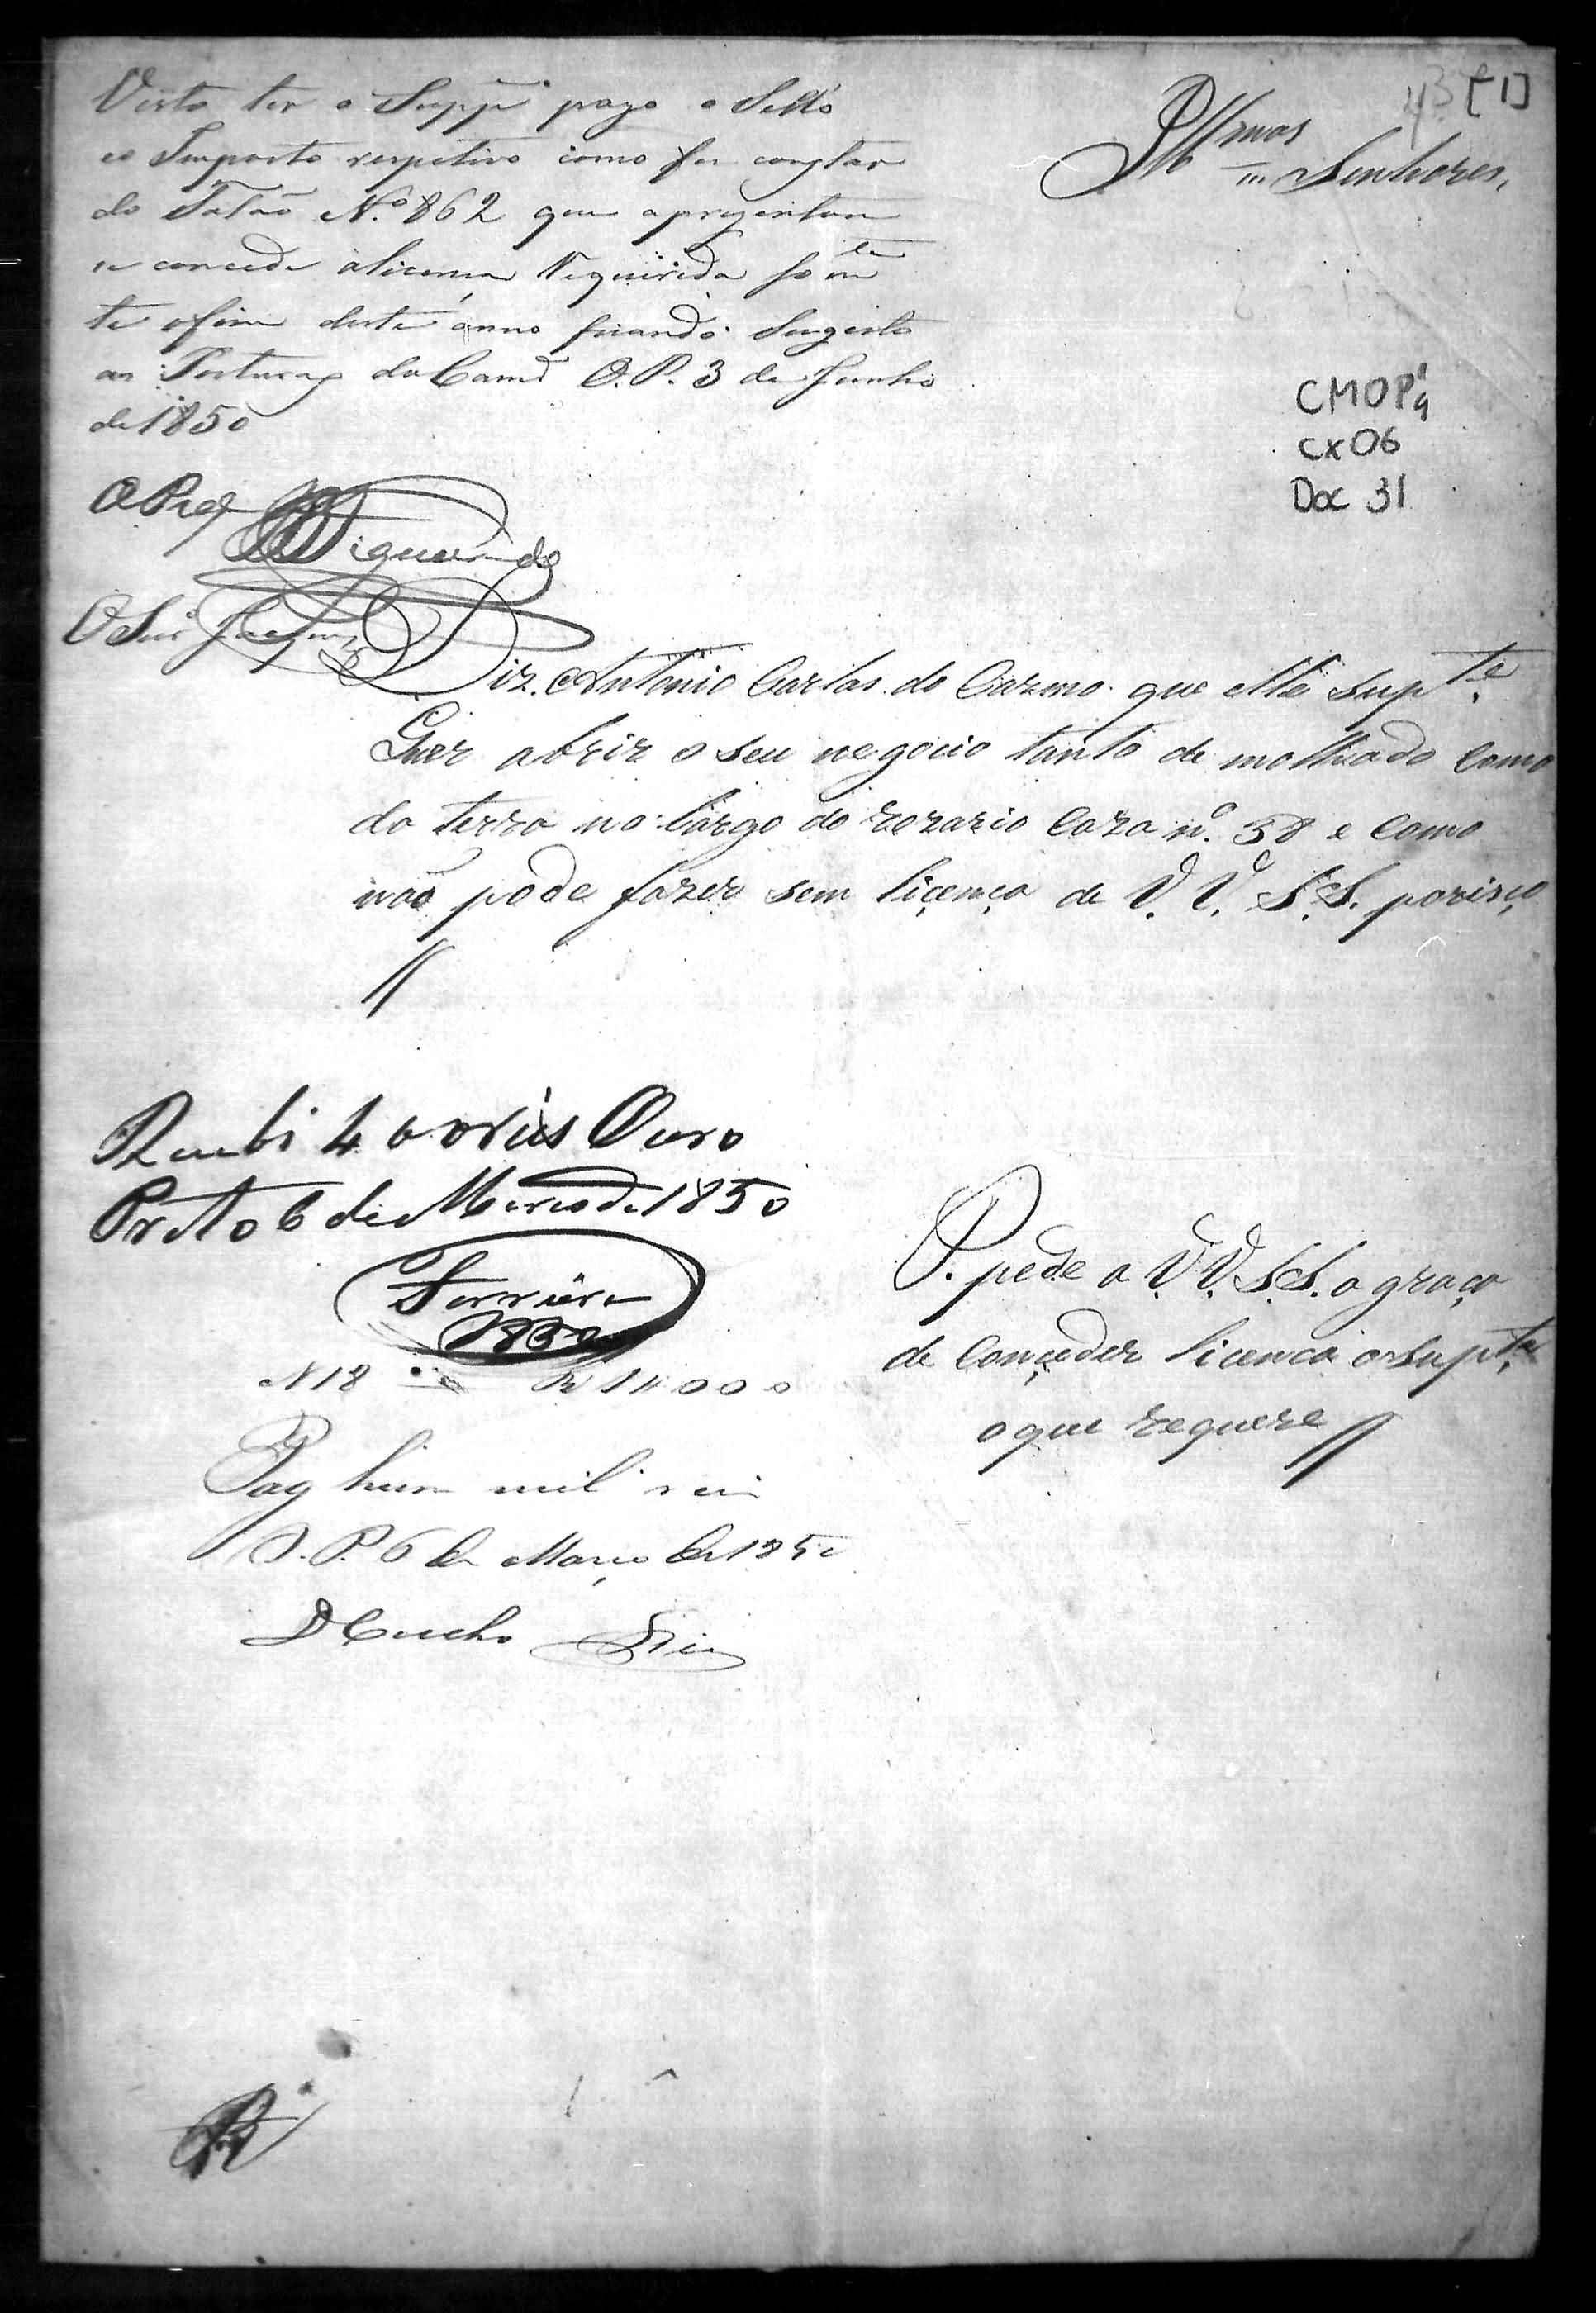 43 [1]
Illmos Senhores,
Visto ter o Suppe pago o Sello
eo Imposto respetivo como fes constar
do Talão N.º 862 que aprezentou
se concede a licença requirida som te
te o fim deste anno ficando Sugeito
as Posturas da Camª O.P. 3 de Junho
de 1850
CMOP¹4
CX06
Doc 31
O
O
Diz Antonio Carlos do Carmo que elle supte
Quer abrir o seu negocio tanto de molhado como
da terra no largo do rozario Caza nº. 38 e Como
não pode fazer sem liçença de V. V. S.S. porisço
Recebi 400 reis Ouro
Preto 6 de Março de 1850
Ferreira
1850
N 18 1000
Pag hum mil reis
O. P. 6 de Março de 1850
P. pede a V. V. S.S. a graça
de Conçeder licença ao supte
o que requere